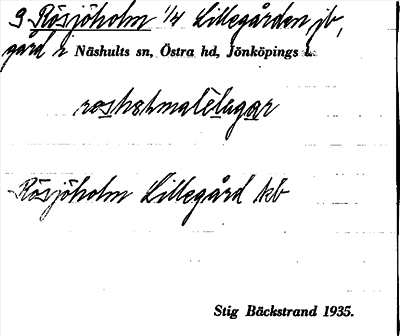 9 Rösjöholm 1/4 Lillegården, jb,
gård i Näshults sn, Östra hd, Jönköpings l.
Rösjöholm Lillegård kb
Stig Bäckstrand 1935.